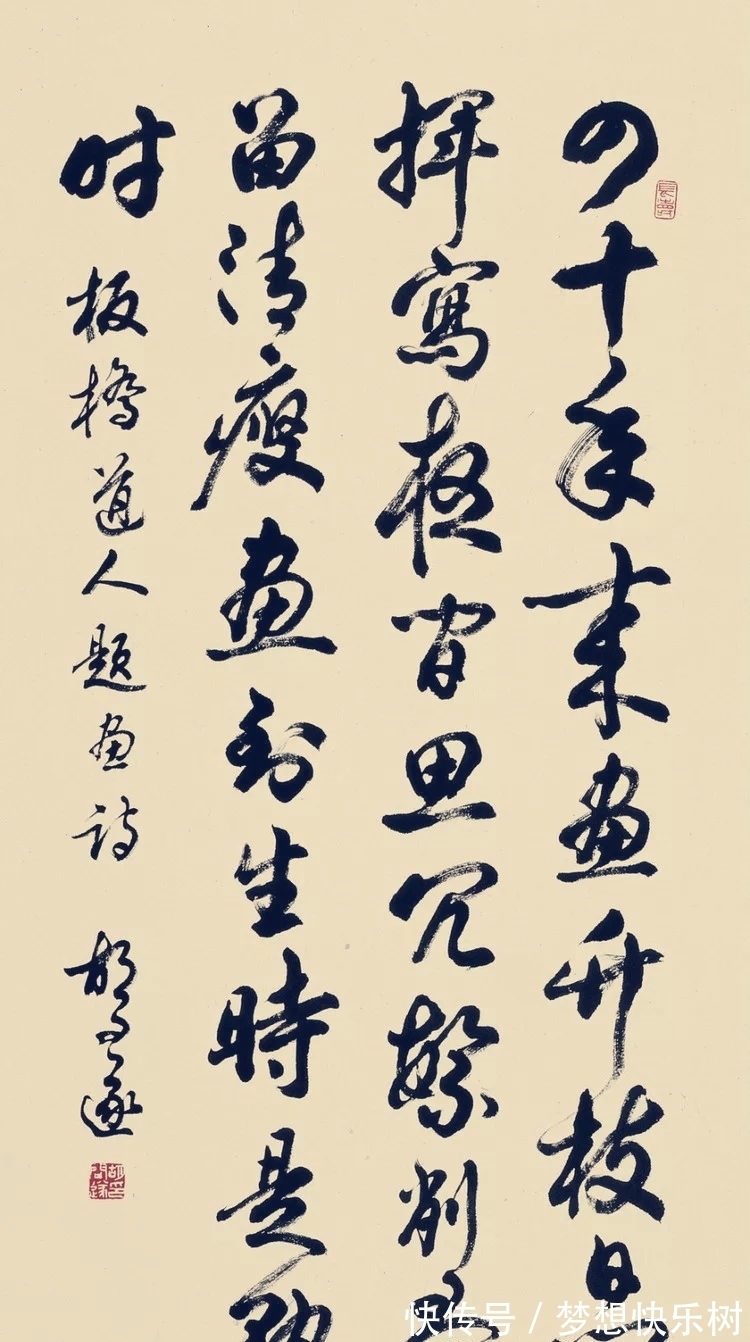 四十年来画竹枝日
揮寫夜间思冗繁削
留清瘦画到生時是
时 板橋道人题画诗 胡问遂
快传号 / 梦想快乐树